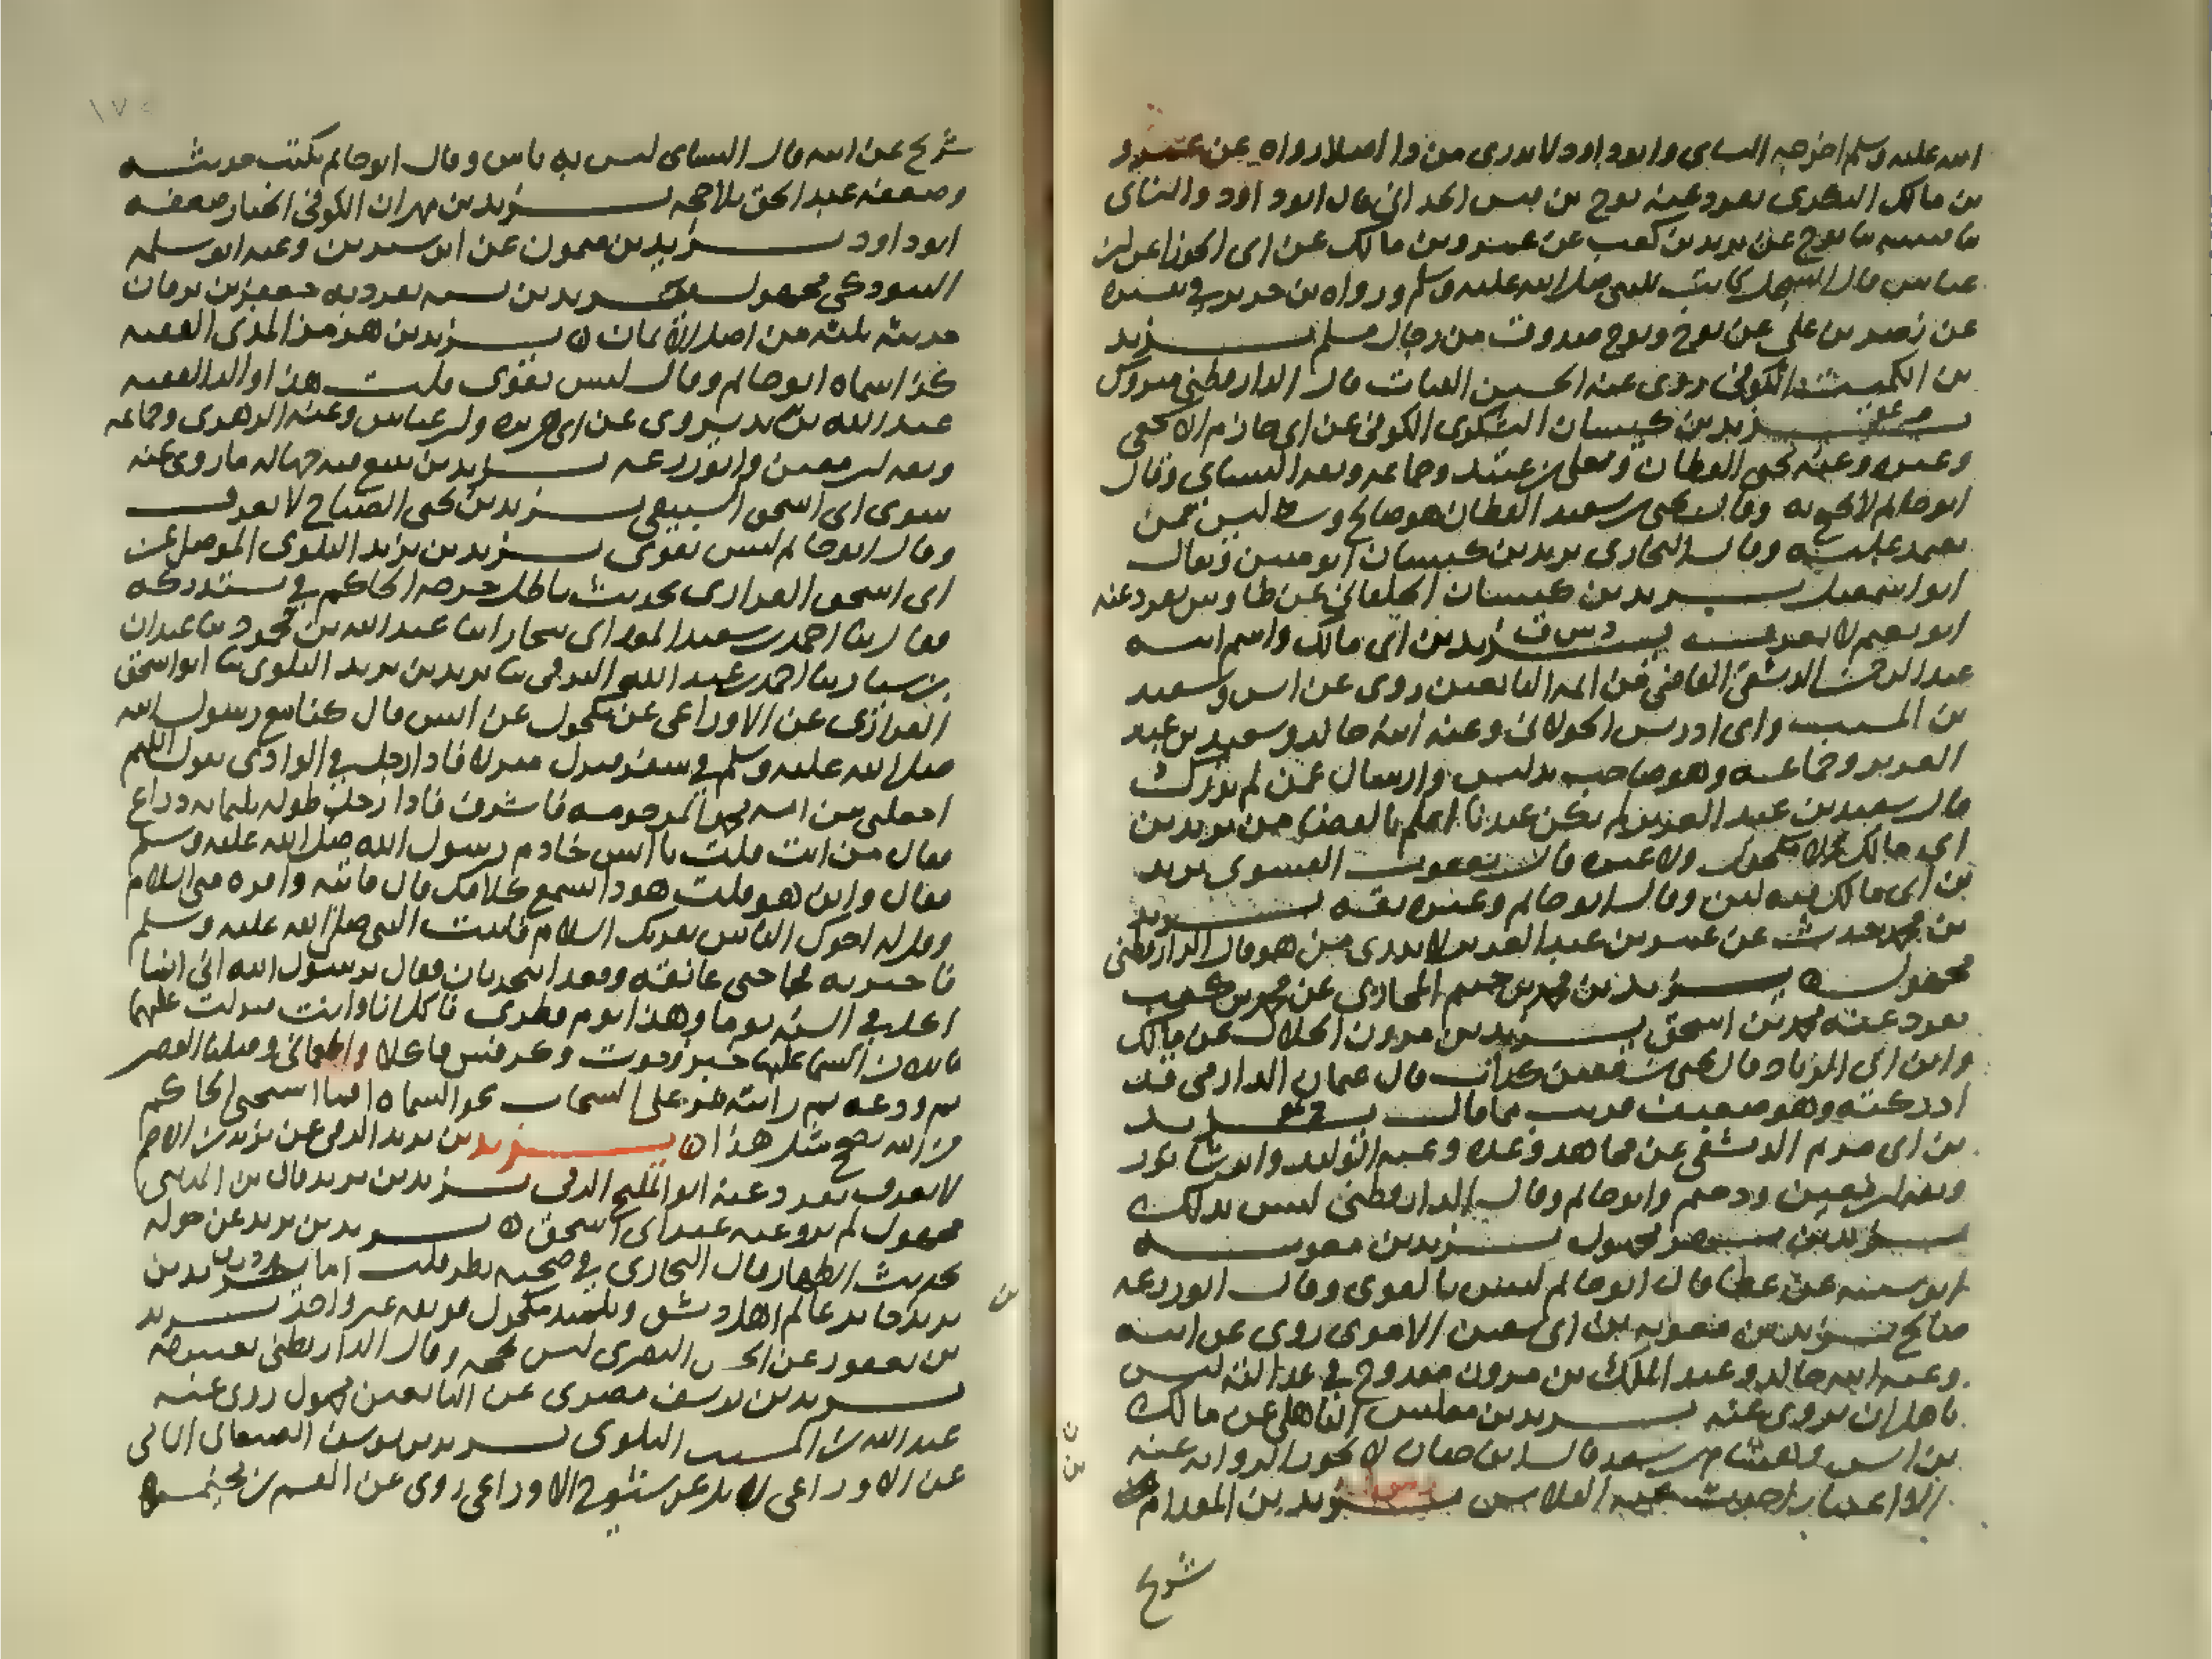 الله عليه وسلم اخرجه النساى وابو داود لا يدرى من ذا اصلا رواه عن عمرو
بن مالك النكرى تفرد عنه نوح بن قيس الحدانى قال ابو داود والنساى
نا قتيبه نا نوح عن يزيد بن كعب عن عمرو بن مالك عن ابى الجوزا عن ابن
عباس قال السجل كاتب للنبى صلى الله عليه وسلم ورواه بن جرير فى تفسيره
عن نصر بن على عن نوح ونوح صدوق من رجال مسلم يزيد
بن الكميت الكوفى روى عنه الحسين القتات قال الدارقطنى متروك
يزيد بن كيسان اليشكرى الكوفى عن ابى حازم الاشجعى
وغيره وعنه يحيى القطان ويعلى بن عبيد وجماعه وثقه النساى وقال
ابو حاتم لا يحتج به وقال يحيى بن سعيد القطان هو صالح وسط ليس ممن
يعتمد عليه وقال البخارى يزيد بن كيسان ابو منين ويقال
ابو اسمعيل يزيد بن كيسان الخلقانى عن طاوس تفرد عنه
ابو نعيم لا يعرف د س ق يزيد بن ابى مالك واسم ابيه
عبد الرحمن الدمشقى القاضى من ايمه التابعين روى عن انس وسعيد
بن المسيب وابى ادريس الخولانى وعنه ابنه خالد وسعيد بن عبد
العزيز وجماعه وهو صاحب تدليس وارسال عمن لم يدرك
قال سعيد بن عبد العزيز لم يكن عندنا اعلم بالقضا من يزيد بن
ابى مالك لا مكحول ولا غيره قال يعقوب الفسوى يزيد
بن ابى مالك فيه لين وقال ابو حاتم وغيره ثقه يزيد
بن محمد حدث عن عمر بن عبد العزيز لا يدرى من هو قال الدارقطنى
مجهول يزيد بن محمد بن خثيم المحاربى عن محمد بن كعب
تفرد عنه محمد بن اسحق يزيد بن مروان الخلال عن مالك
وابن ابى الزناد قال يحيى بن معين كذاب قال عثمان الدارمى قد
ادركته وهو ضعيف قريب مما قال يحيى يزيد
بن ابى مريم الدمشقى عن مجاهد وعده وعنه الوليد وابن شابور
وثقه ابن معين ودحيم وابو حاتم وقال الدارقطنى ليس بذلك
يزيد بن مجهول يزيد بن معويه
ابو شيبه عن عطا قال ابو حاتم ليس بالقوى وقال ابو زرعه
صالح يزيد بن معويه بن ابى سفين الاموى روى عن ابيه
وعنه ابنه خالد وعبد الملك بن مروان مقدوح فى عدالته ليس
باهل ان يروى عنه يزيد بن مغلس الباهلى عن مالك
بن انس وهشام بن سعد قال ابن حبان لا يجوز الروايه عنه
الا اعتبارا حدث عنه الفلاس يزيد بن المقدام بن
شريح
شريح عن ابيه قال النساى ليس به باس وقال ابو حاتم يكتب حديثه
وضعفه عبد الحق بلا حجه يزيد بن مهران الكوفى الخباز ضعفه
ابو داود يزيد بن ميمون عن ابن سيرين وعنه ابو سلمه
التبوذكى مجهول يزيد بن نشبه تفرد به جعفر بن برقان
حديثه ثلثه من اصل الايمان يزيد بن هرمز المدنى الفقيه
كذا سماه ابو حاتم وقال ليس بقوى قلت هذا والد الفقيه
عبد الله بن يزيد يروى عن ابى هريره وابن عباس وعنه الزهرى وجماعه
وثقه ابن معين وابو زرعه يزيد بن يثيع فيه جهاله ما روى عنه
سوى ابى اسحق السبيعى يزيد بن يحيى الصباح لا يعرف
وقال ابو حاتم ليس بقوى يزيد بن يزيد البلوى الموصلى عن
ابى اسحق الفزارى بحديث باطل خرجه الحاكم فى مستدركه
فقال نا احمد بن سعيد ببخارا نا عبد الله بن محمود نا عبدان
بن سيار نا احمد بن عبد الله البرقى نا يزيد بن يزيد البلوى نا ابو اسحق
الفزارى عن الاوزاعى عن مكحول عن انس قال كنا مع رسول الله
صلى الله عليه وسلم فى سفر فنزل منزلا فاذا رجل فى الوادى يقول اللهم
اجعلنى من امه محمد المرحومه فاشرفت فاذا رجل طوله ثلثمايه ذراع
فقال من انت قلت انا انس خادم رسول الله صلى الله عليه وسلم
فقال واين هو قلت هو ذا يسمع كلامك قال فاته واقره منى السلام
وقل له اخوك الياس يقريك السلام فاتيت النبى صلى الله عليه وسلم
فاخبرته فجا حتى عانقه وقعدا يتحدثان فقال يرسول الله انى انما
اكل فى السنه يوما وهذا يوم فطرى فاكل انا وانت فنزلت عليهما
مائده من السما عليها خبز وحوت وكرفس فاكلا واطعمانى وصلينا العصر
ثم ودعه ثم رايته مر على السحاب نحو السماء افما استحيى الحاكم
من الله يصحح مثل هذا يزيد بن يزيد الرقى عن يزيد بن الاصم
لا يعرف تفرد عنه ابو المليح الرقى يزيد بن يزيد قال بن المدينى
مجهول لم يرو عنه غير ابى اسحق يزيد بن يزيد عن خوله
بحديث الظهار قال البخارى فى صحته نظر قلت اما يزيد بن
يزيد بن جابر عالم اهل دمشق وتلميذ مكحول فوثقه غير واحد يزيد
بن يعفور عن الحسن البصرى ليس بحجه وقال الدارقطنى يعتبر به
يزيد بن يوسف مصرى عن التابعين مجهول روى عنه
عبد الله بن المسيب البلوى يزيد بن يوسف الصنعانى
عن الاوزاعى روى عن القسم بن مخيمره